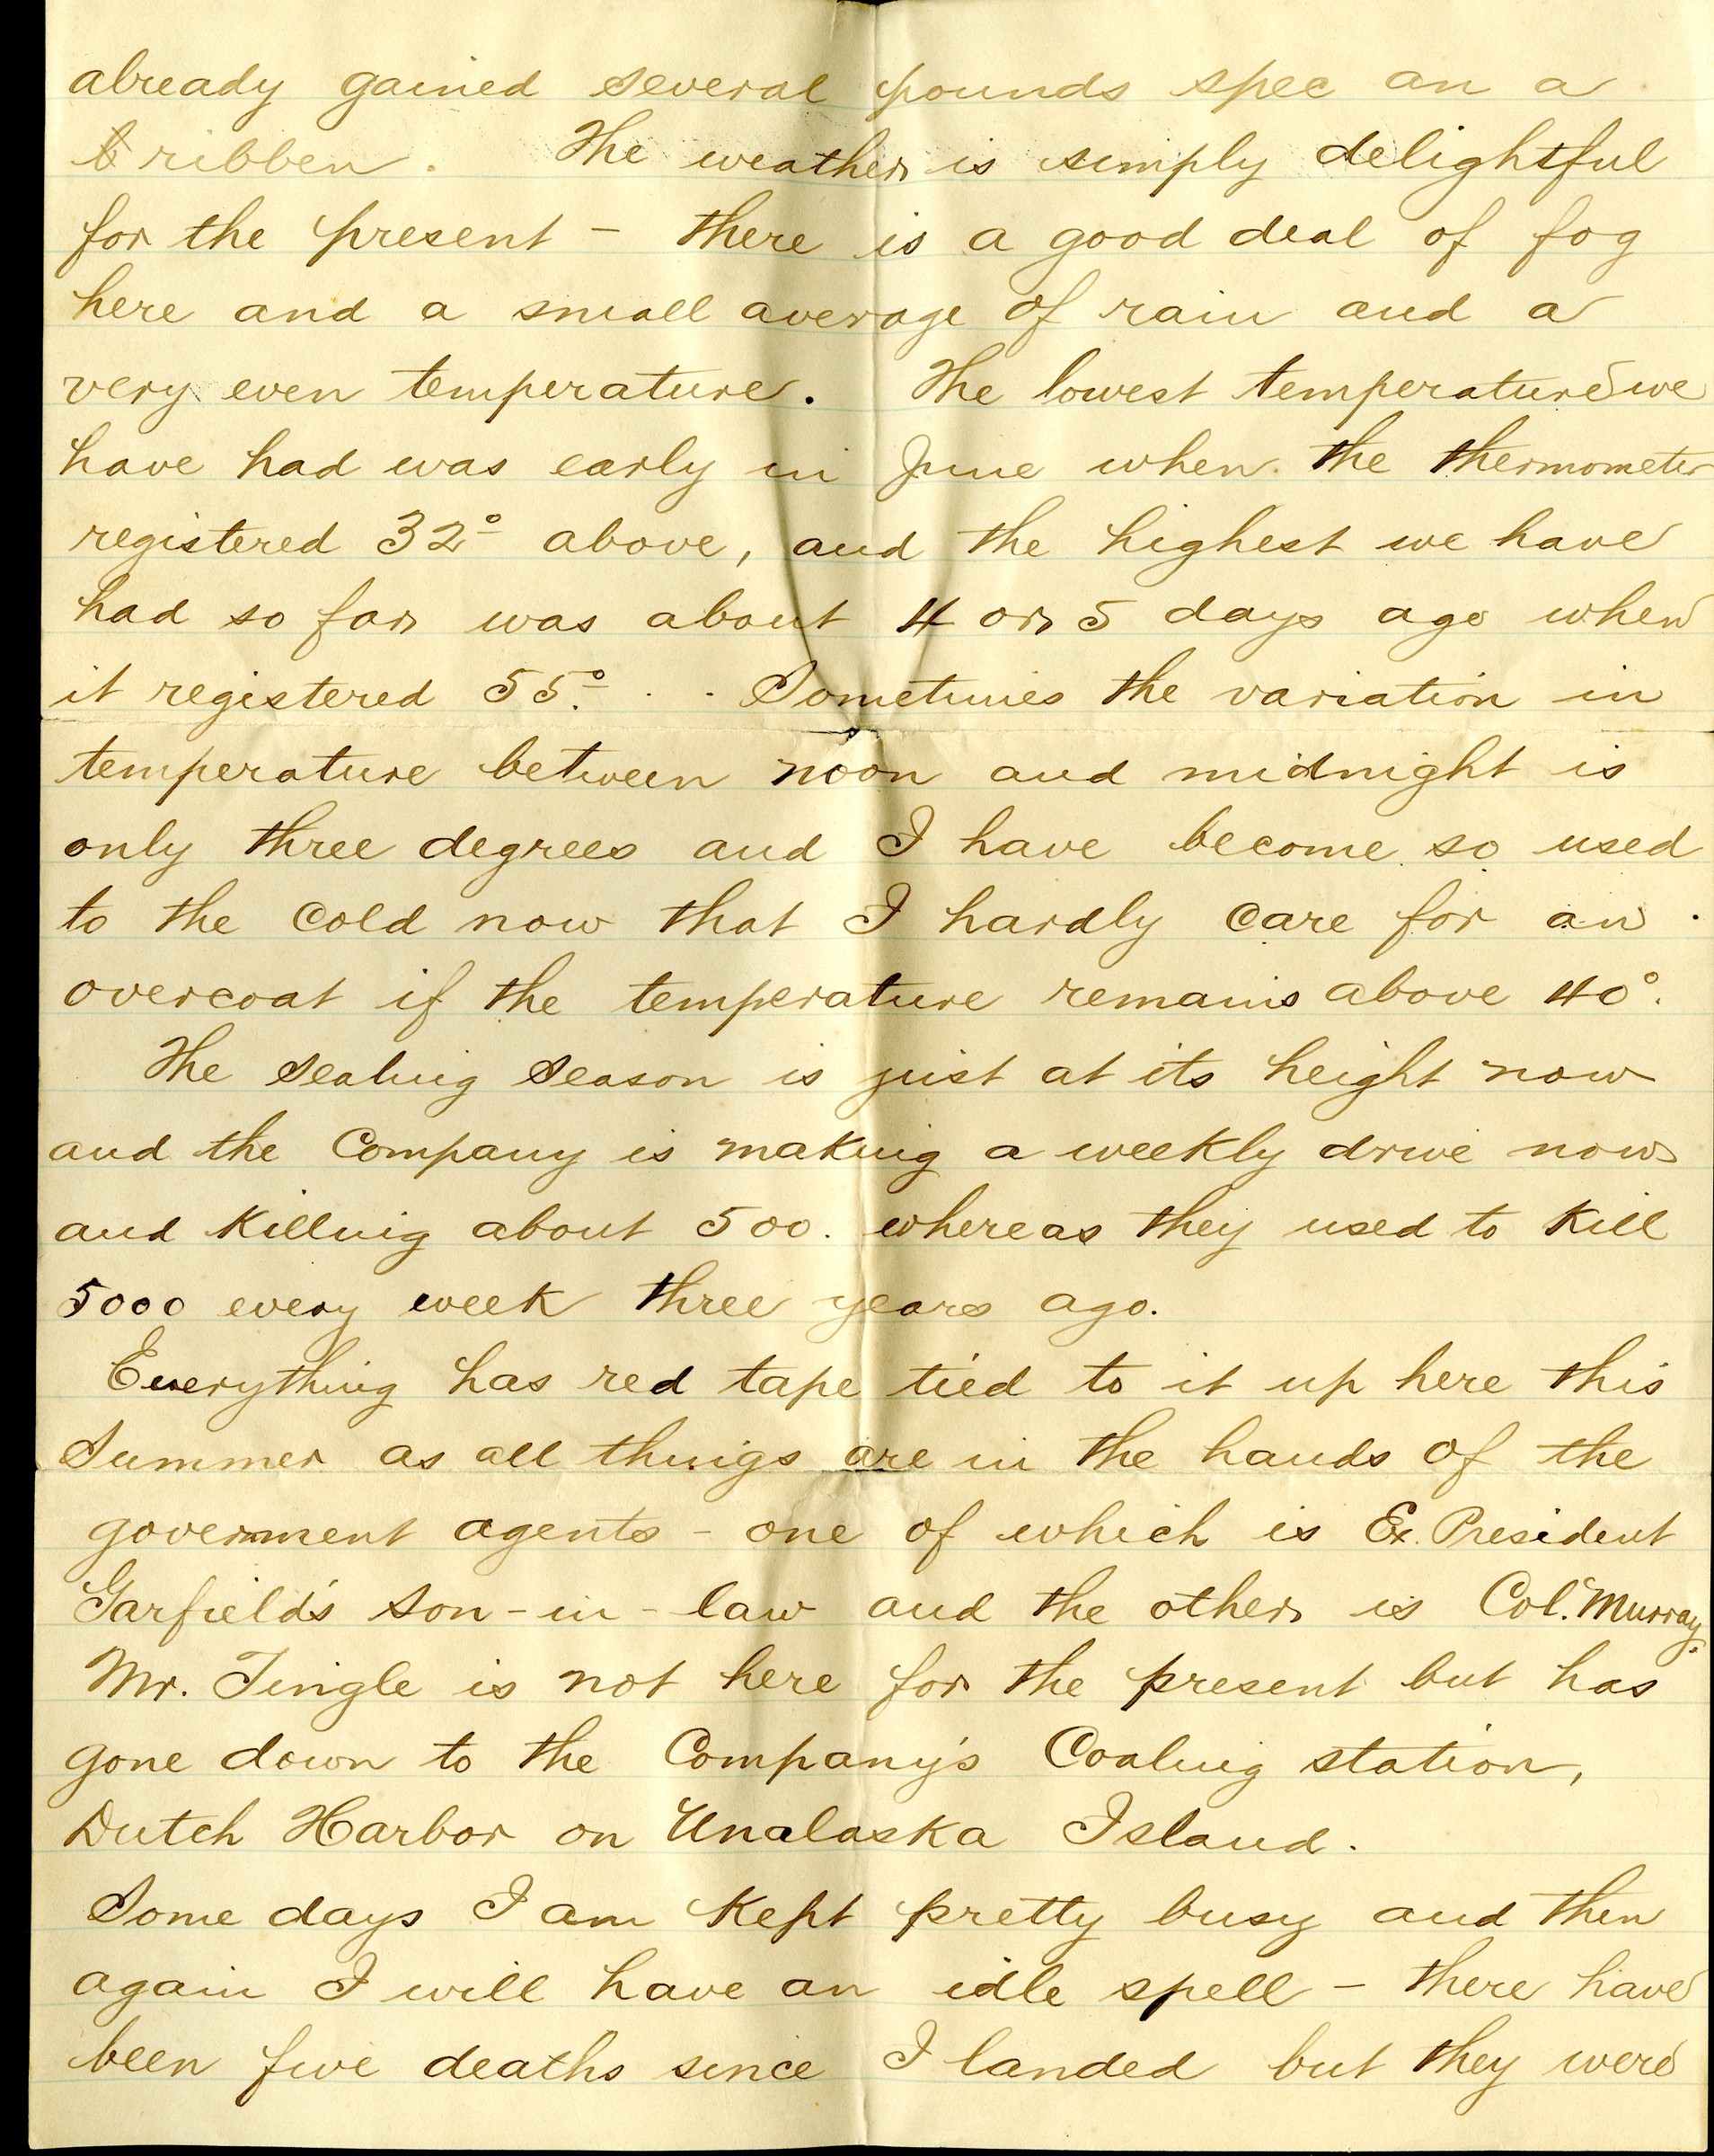 already gained several pounds spec an a
ribben. The weather is simply delightful
for the present - there is a good deal of fog
here and a small average of rain and a
very even temperature. The lowest temperature we
have had was early in June when the thermometer
registered 32° above, and the highest we have
had so far was about 4 or 5 days ago when
it registered 55°. . . Sometimes the variation in
temperature between noon and midnight is
only three degrees and I have become so used
to the cold now that I hardly care for an
overcoat if the temperature remains above 40°.
The Sealing Season is just at its height now
and the Company is making a weekly drive now
and killing about 500. whereas they used to kill
5000 every week three years ago.
Everything has red tape tied to it up here this
Summer as all things are in the hands of the
government agents - one of which is Ex. President
Garfield's son-in-law and the other is Col. Murray.
Mr. Tingle is not here for the present but has
gone down to the Company's Coaling station,
Dutch Harbor on Unalaska Island.
Some days I am kept pretty busy and then
again I will have an idle spell - there have
been five deaths since I landed but they were